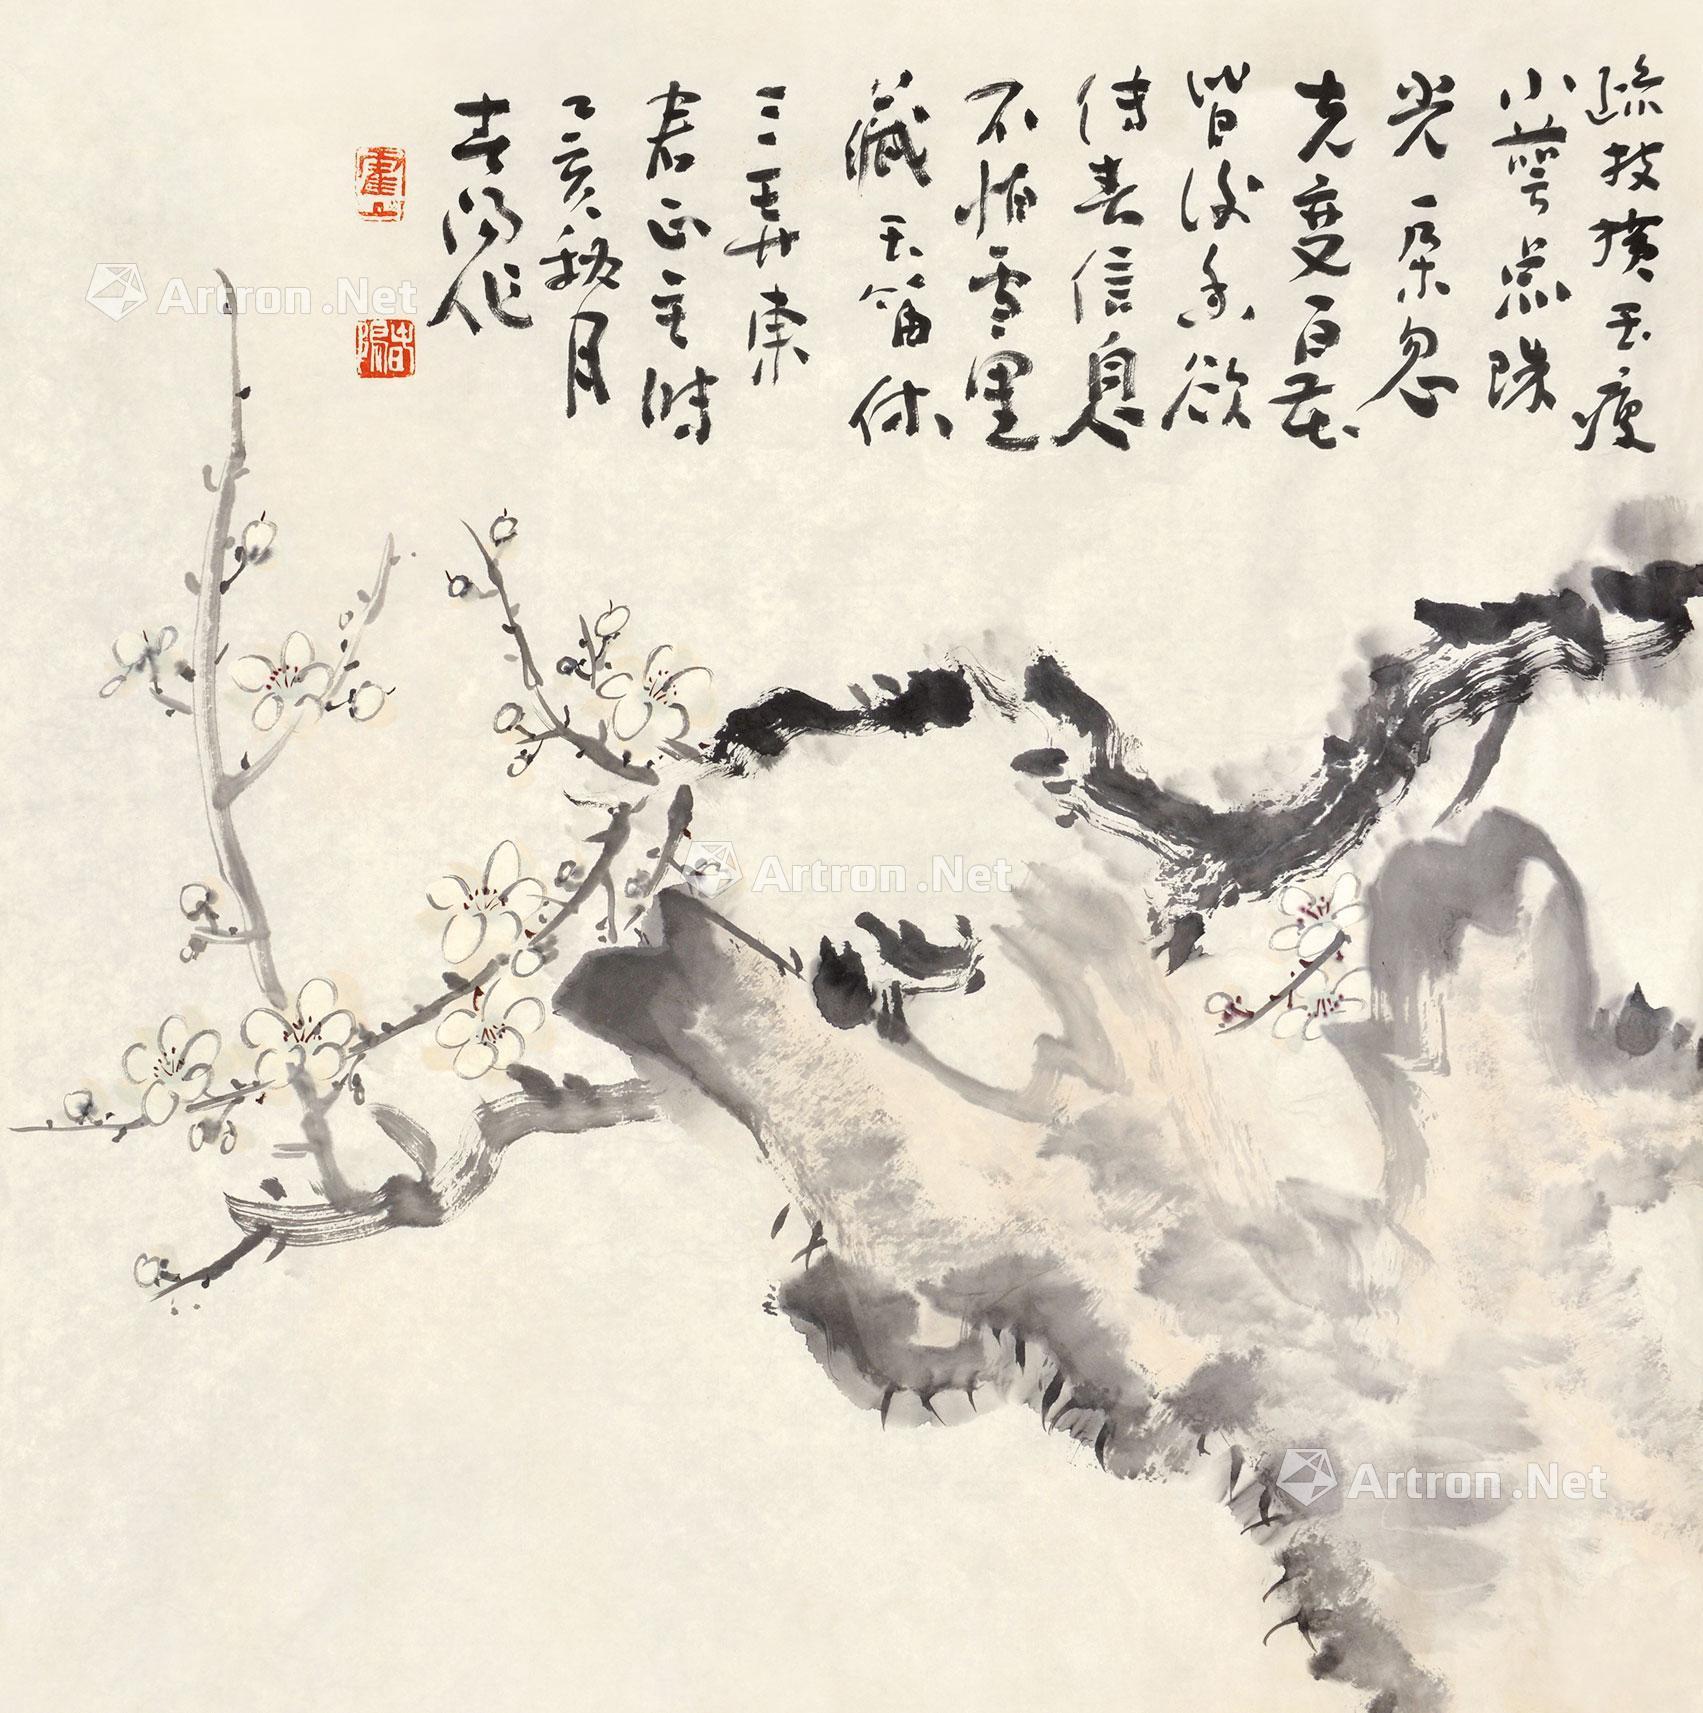 疏枝横玉瘦
小萼点珠
光一朵忽
先变百花
皆后香欲
传春信息
不怕雪里
藏玉笛休
三弄东
君正主时
乙亥秋月
春阳作
春陽
Artron.Net
Artron.Net
Artron.Net